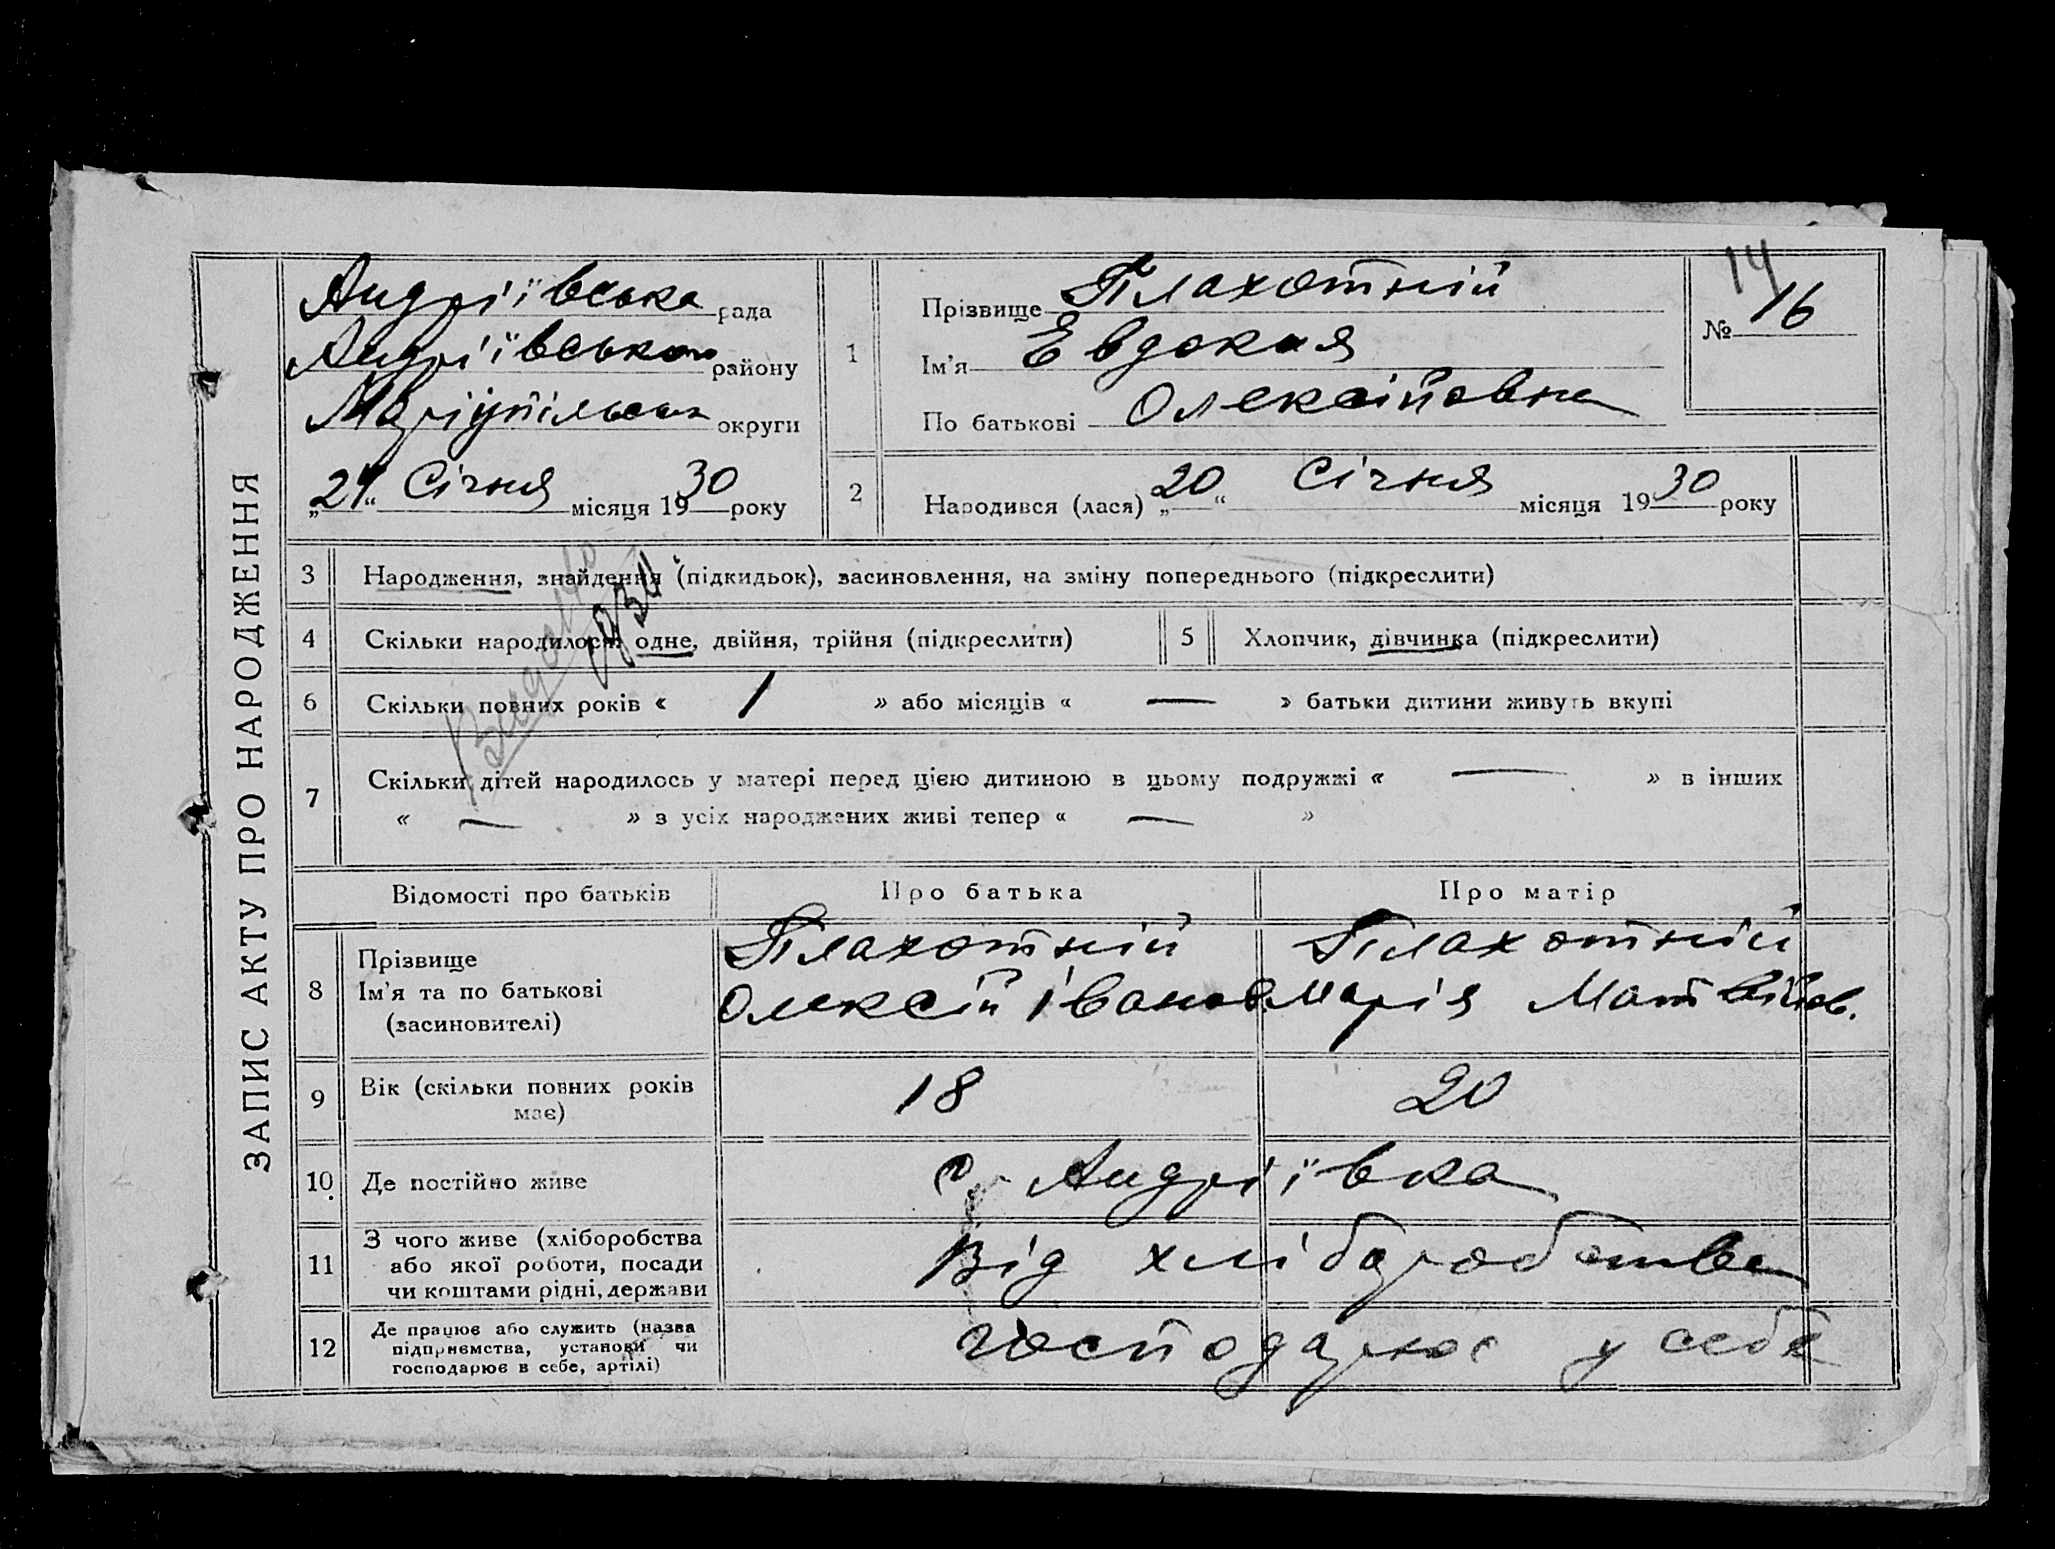 ЗАПИС АКТУ ПРО НАРОДЖЕННЯ
Андріївська рада
Андріївського району
Маріупільська округи
„24“ Січня місяця 1930 року
1 Прізвище Плахотній
Ім'я Евдокия
По батькові Олексійовна
14
№ 16
2 Народився (лася) „20“ Січня місяця 1930 року
3 Народження, знайдення (підкидьок), засиновлення, на зміну попереднього (підкреслити)
4 Скільки народилося одне, двійня, трійня (підкреслити) 5 Хлопчик, дівчинка (підкреслити)
6 Скільки повних років « 1 » або місяців « — » батьки дитини живуть вкупі
7 Скільки дітей народилось у матері перед цією дитиною в цьому подружжі « — » в інших
« — » з усіх народжених живі тепер « — »
Відомості про батьків Про батька Про матір
8 Прізвище Плахотній Плахотній
Ім'я та по батькові Олексій Іванов. Марія Матвійов.
(засиновителі)
9 Вік (скільки повних років має) 18 20
10 Де постійно живе с Андріївка
11 З чого живе (хліборобства
або якої роботи, посади Від хліборобства
чи коштами рідні, держави
12 Де працює або служить (назва
підприємства, установи чи господарює у себе
господарює в себе, артілі)